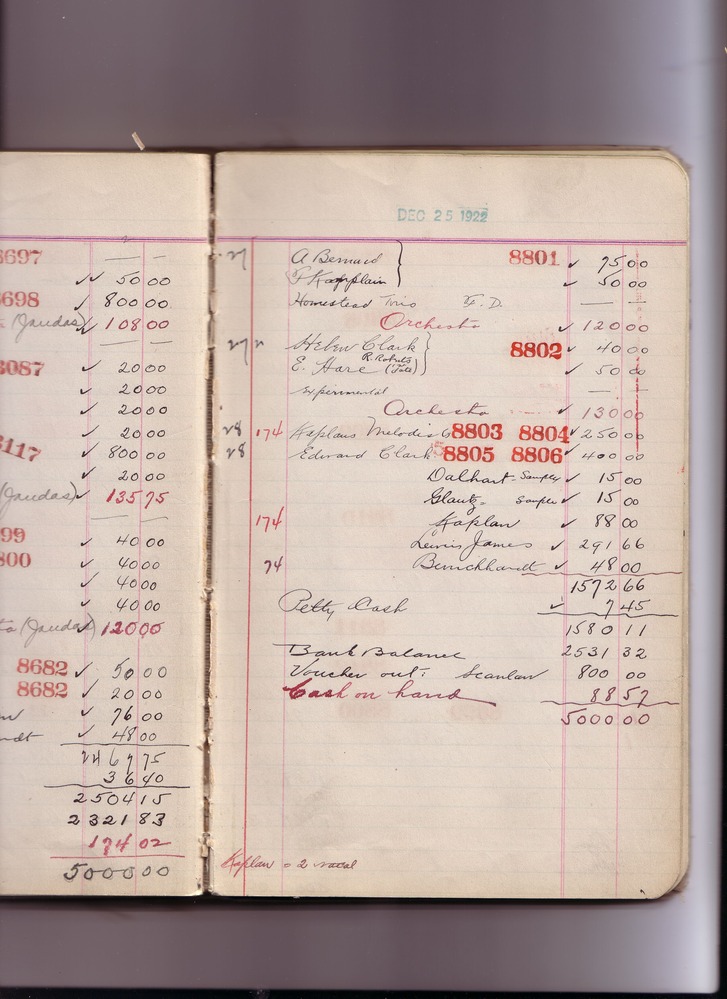 6697 — —
✓✓ 50 00
6698 ✓ 800 00
(Jaudas) ✓ 108 00
— —
3087 ✓ 20 00
✓ 20 00
✓ 20 00
✓ 20 00
3117 ✓ 800 00
✓ 20 00
(Jaudas) ✓ 135 75
— —
99 ✓ 40 00
800 ✓ 40 00
✓ 40 00
✓ 40 00
(Jaudas) ✓ 120 00
8682 ✓ 50 00
8682 ✓ 20 00
✓ 76 00
ndt ✓ 48 00
2467 75
36 40
2504 15
2321 83
174 02
5000 00
DEC 25 1922
27 A Bernard } 8801 ✓ 75 00
✓ 50 00
Homestead Trio T. D. — —
Orchestra ✓ 120 00
27 " Helen Clark } 8802 ✓ 40 00
R. Roberts
E. Hare (Tale) ✓ 50 00
Experimental — —
Orchestra ✓ 130 00
28 174 Kaplans Melodists 8803 8804 ✓ 250 00
28 Edward Clark 8805 8806 ✓ 400 00
Dalhart - Sample ✓ 15 00
Glantz - Sample ✓ 15 00
174 Kaplan ✓ 88 00
Lewis James ✓ 291 66
74 Burckhardt ✓ 48 00
1572 66
Petty Cash ✓ 7 45
1580 11
Bank Balance 2531 32
Voucher out: Scanlan 800 00
Cash on hand 88 57
5000 00
Kaplan = 2 vocal